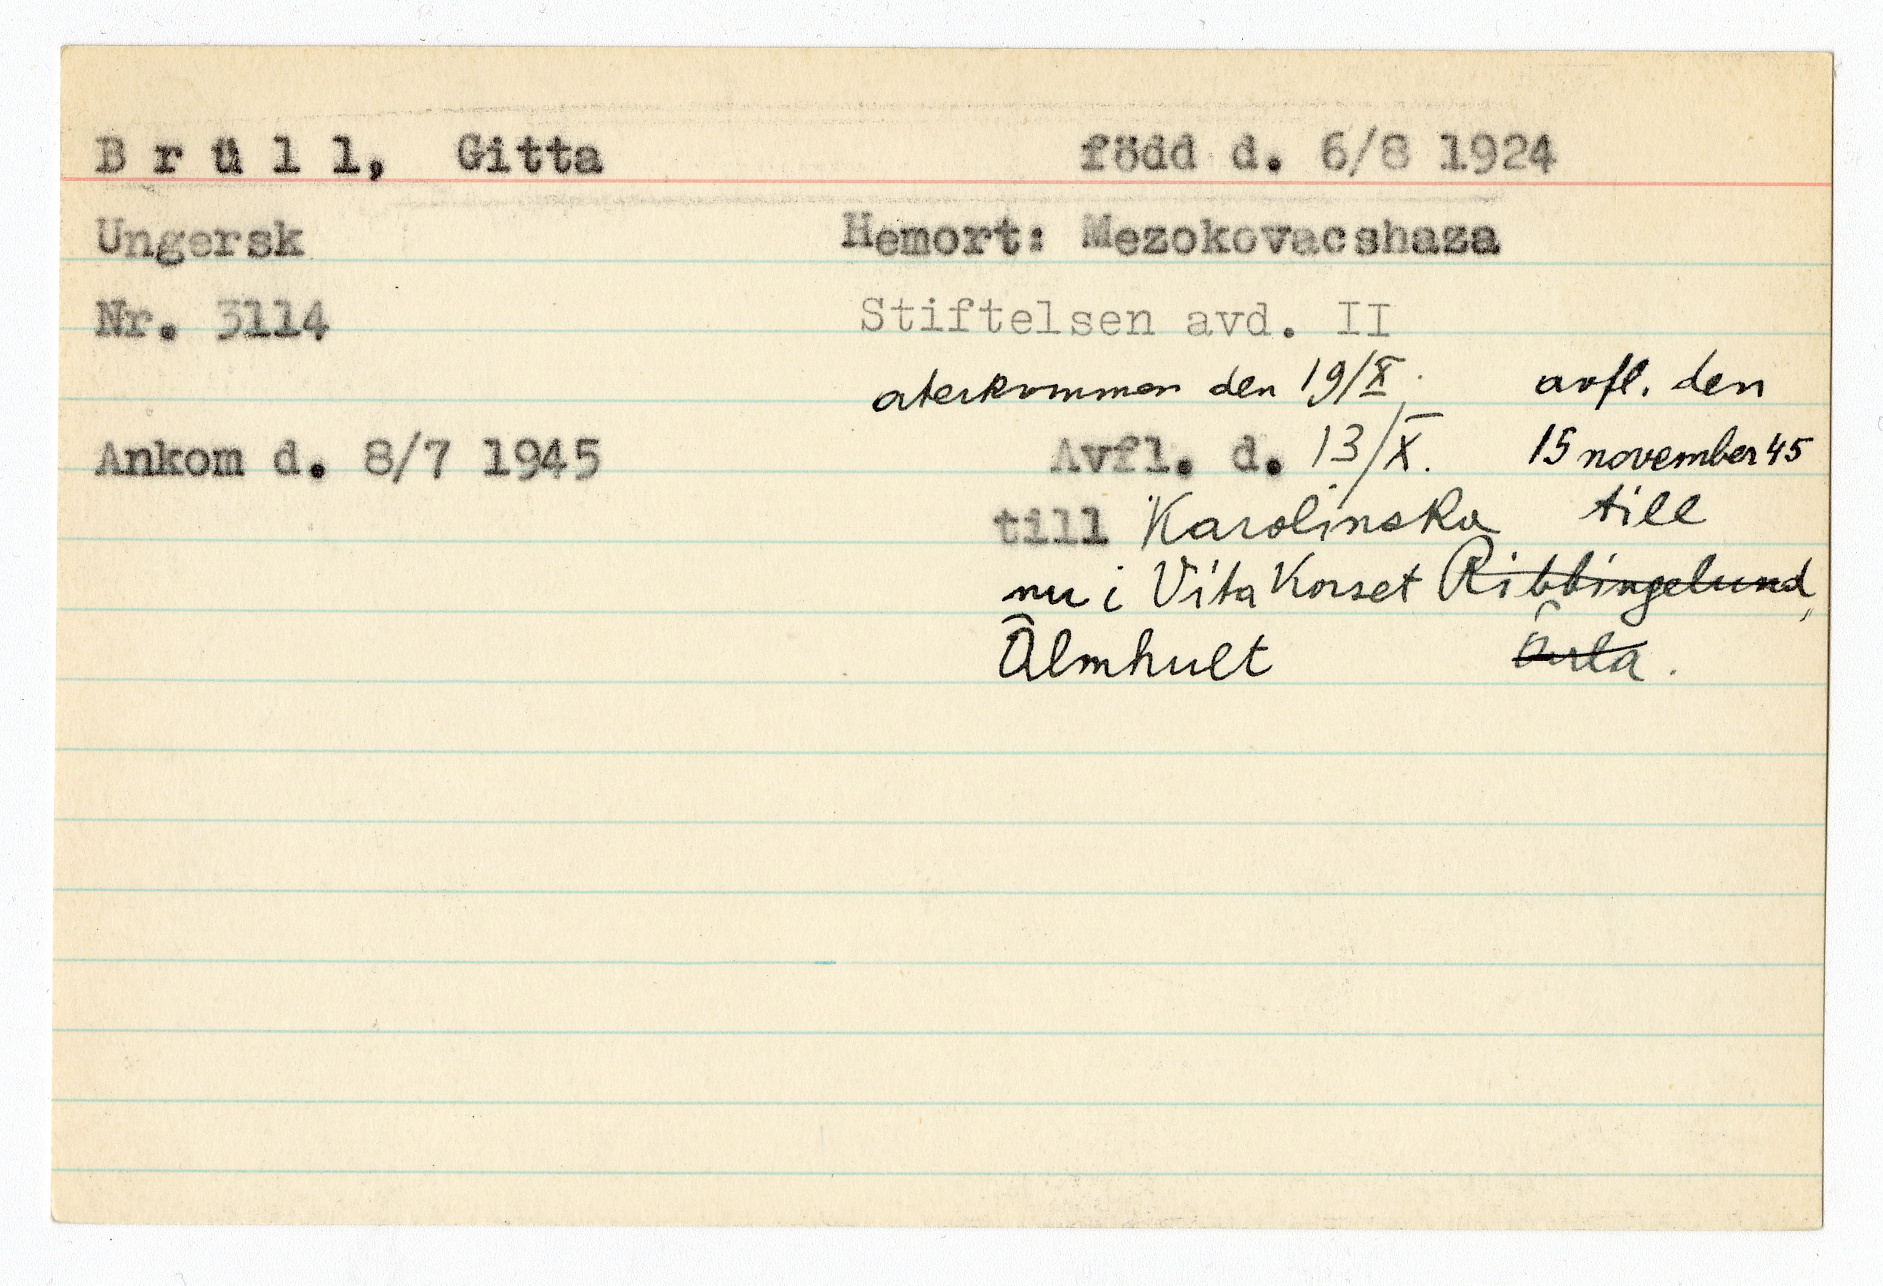 Brüll, Gitta född d. 6/8 1924
Ungersk Hemort: Mezokovacshaza
Nr. 3114 Stiftelsen avd. II
återkommen den 19/X. avfl. den
Ankom d. 8/7 1945 Avfl. d. 13/X. 15 november 45
till Karolinska till
nu i Vita Korset Ribbingelund,
Älmhult